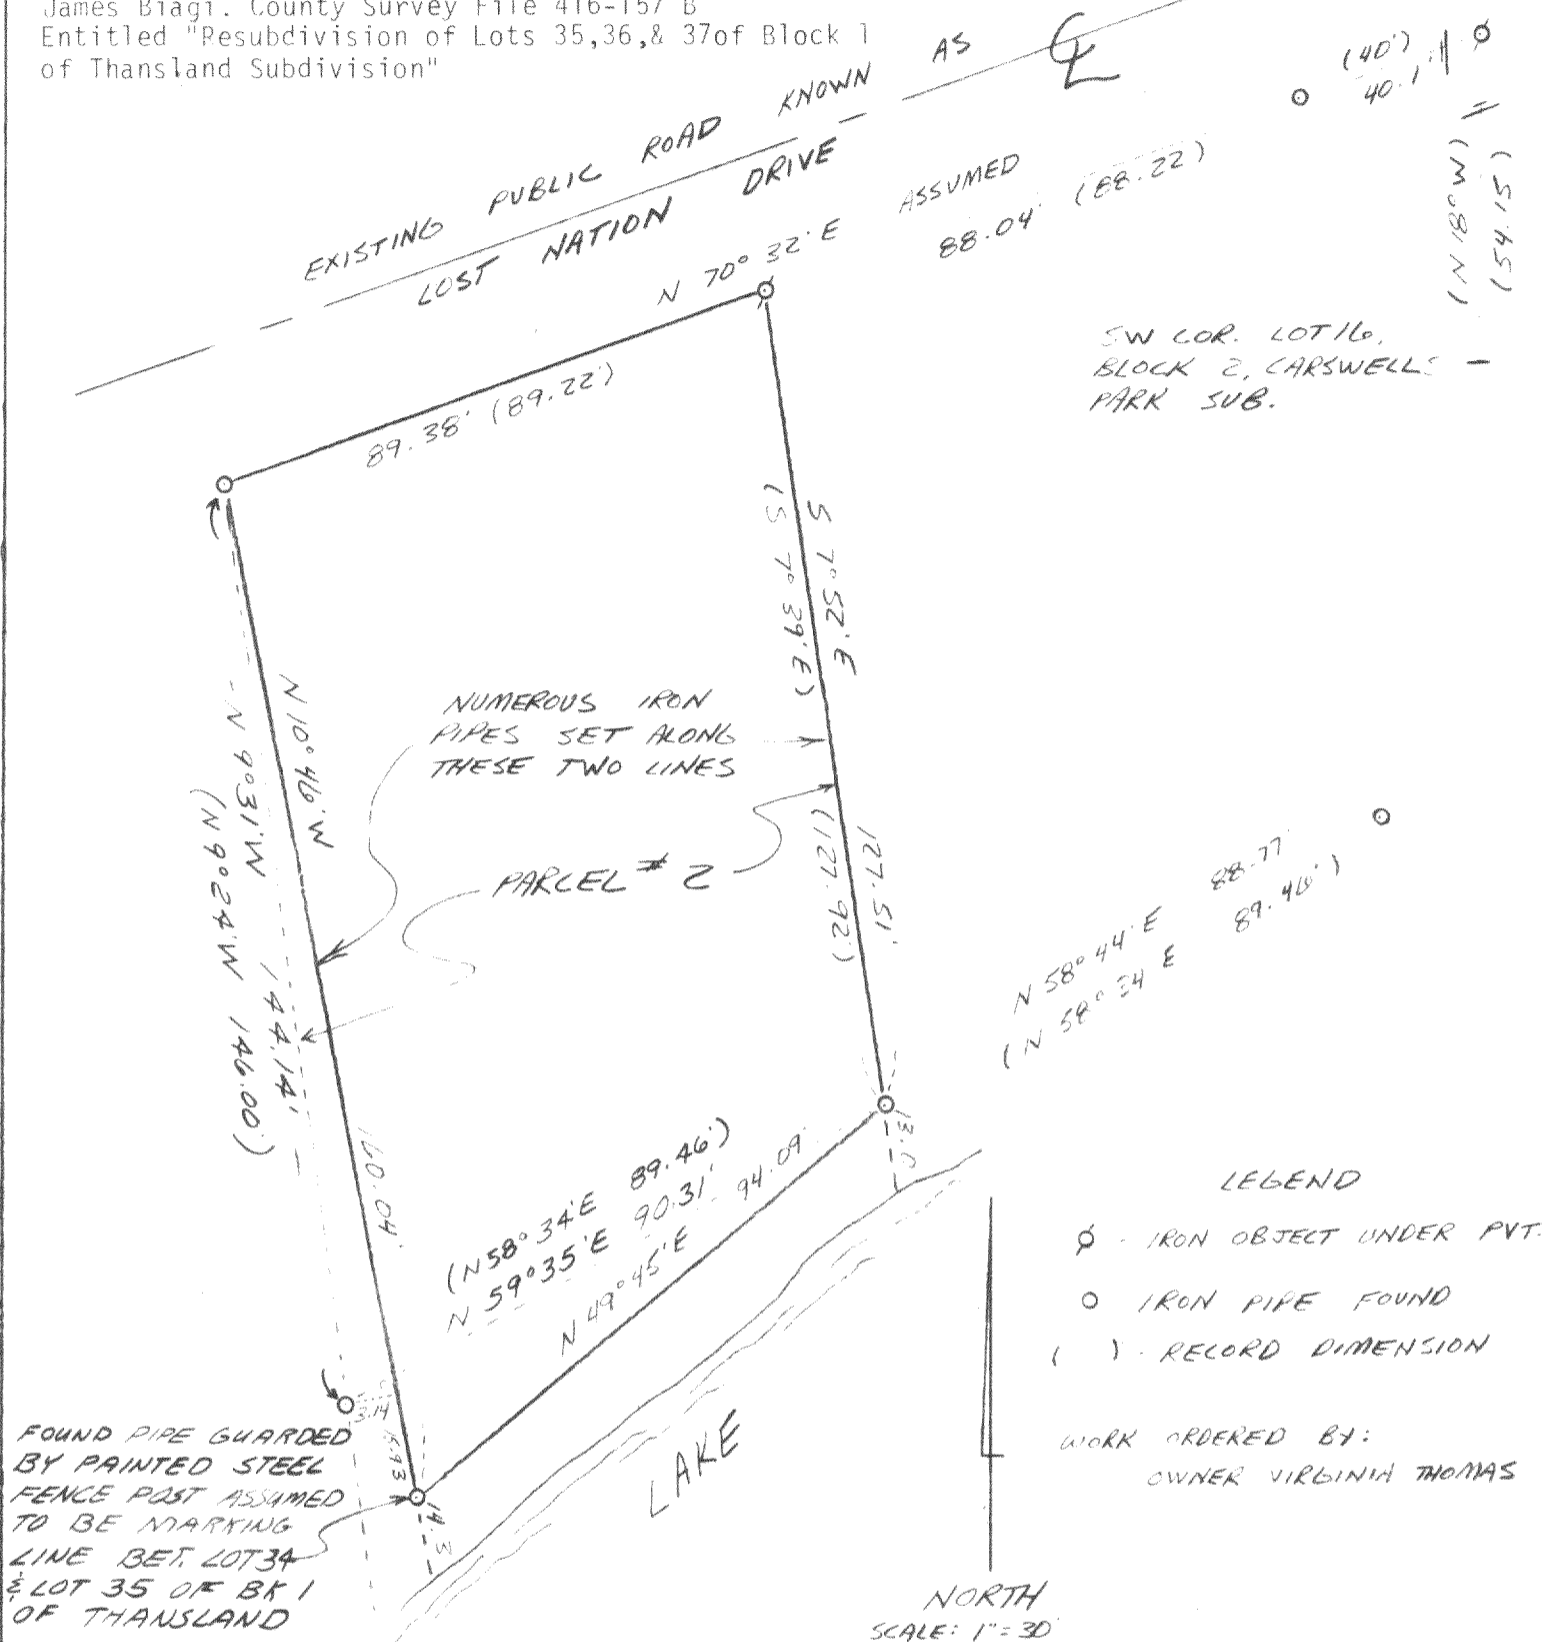 James Biagi. County Survey File 416-157 B
Entitled "Resubdivision of Lots 35,36,& 37of Block 1
of Thansland Subdivision"
EXISTING PUBLIC ROAD KNOWN AS
LOST NATION DRIVE
N 70° 32' E ASSUMED
88.04' (88.22')
(40')
40.1'
(N 18° W)
(54.15')
SW COR. LOT 16,
BLOCK 2, CARSWELLS
PARK SUB.
89.38' (89.22')
S 7° 52' E
(S 7° 39' E)
127.51'
(127.92')
NUMEROUS IRON
PIPES SET ALONG
THESE TWO LINES
PARCEL # 2
N 10° 46' W
160.04'
N 9° 31' W 144.14'
(N 9° 24' W 146.00')
N 58° 44' E 88.77'
(N 58° 34' E 89.46')
(N 58° 34' E 89.46')
N 59° 35' E 90.31'
N 49° 45' E 94.09'
LAKE
FOUND PIPE GUARDED
BY PAINTED STEEL
FENCE POST ASSUMED
TO BE MARKING
LINE BET. LOT 34
& LOT 35 OF BK 1
OF THANSLAND
LEGEND
IRON OBJECT UNDER PVT.
IRON PIPE FOUND
( ) - RECORD DIMENSION
WORK ORDERED BY:
OWNER VIRGINIA THOMAS
NORTH
SCALE: 1" = 30'